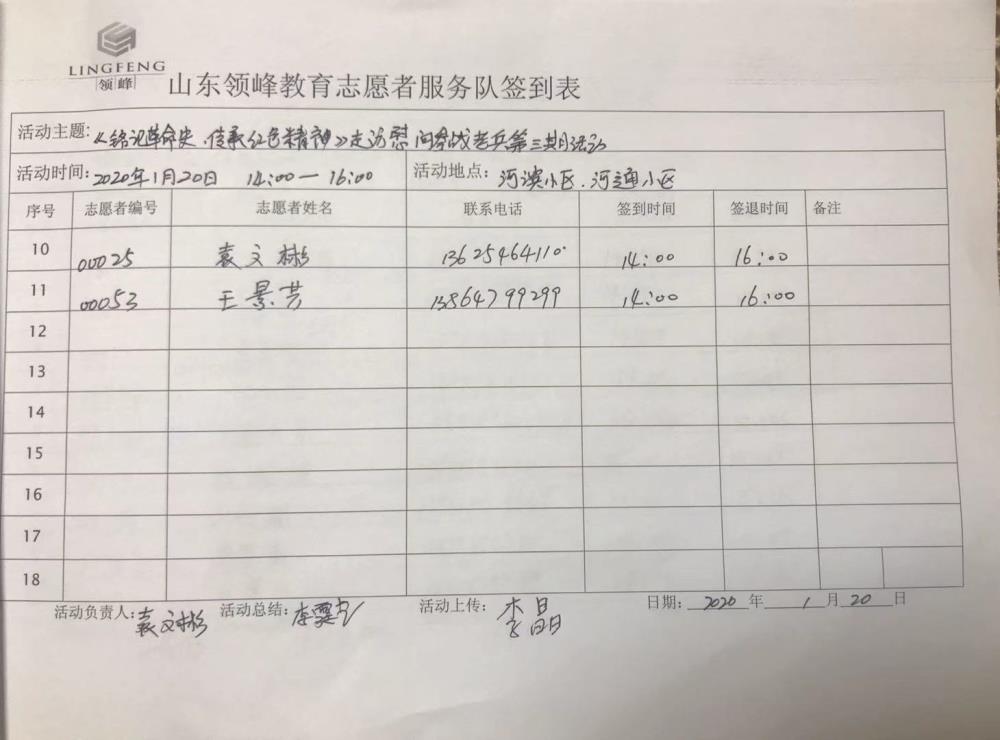 LINGFENG
领峰
山东领峰教育志愿者服务队签到表
活动主题:《铭记革命史、传承红色精神》走访慰问参战老兵第三期活动
活动时间:2020年1月20日 14:00—16:00 活动地点:河滨小区、河通小区
序号 志愿者编号 志愿者姓名 联系电话 签到时间 签退时间 备注
10 00025 袁文彬 13625464110 14:00 16:00
11 00053 王景芸 13864799299 14:00 16:00
12
13
14
15
16
17
18
活动负责人:袁文彬 活动总结:李 活动上传:李晶 日期: 2020 年 1 月 20 日